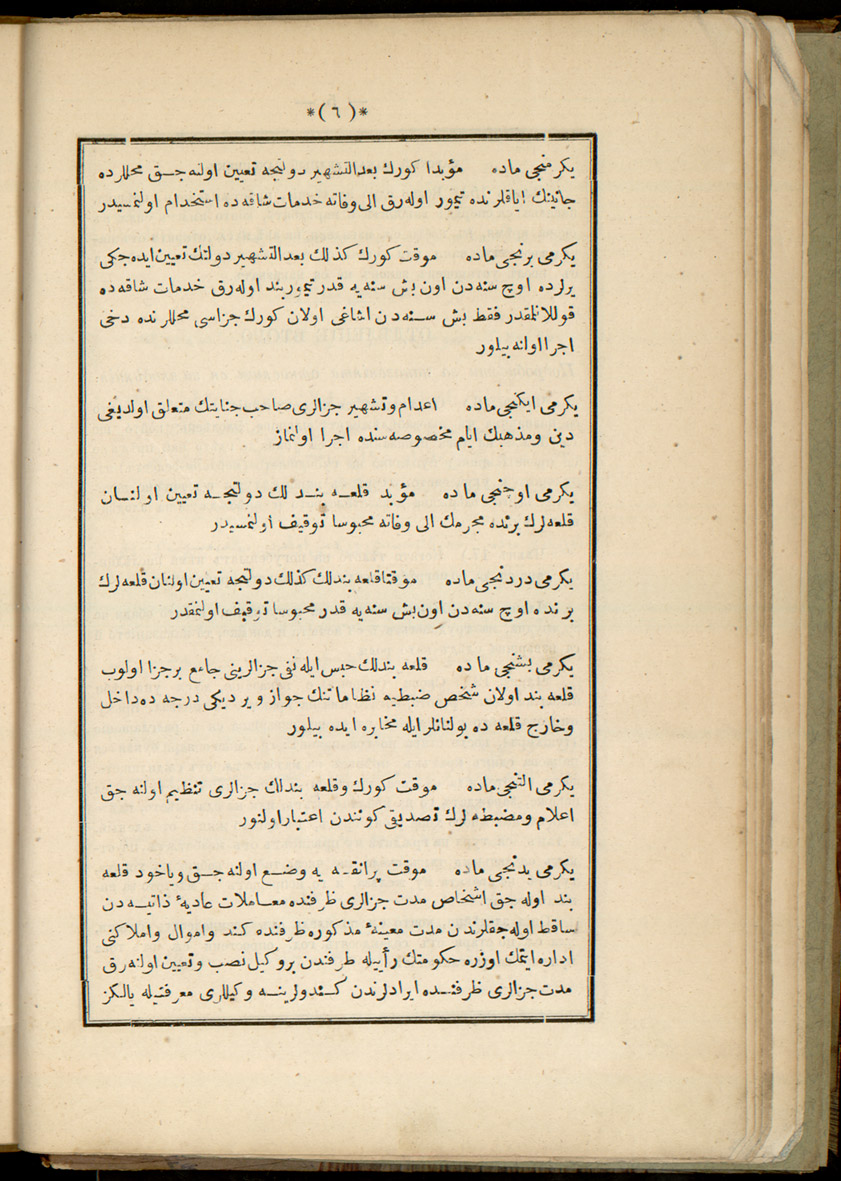 *(٦)*
یكرمنجی ماده مؤبدا كورك بعدالتشهیر دولتجه تعیین اولنه جـق محللرده
جانینك ایاقلرنده تیمور اوله رق الی وفاته خدمات شاقه ده استخدام اولنمسیدر
یكرمی برنجی ماده موقت كورك كذلك بعدالتشهیر دولتك تعیین ایده جكی
یرلرده اوچ سنه دن اون بش سنه یه قدر تیموربند اوله رق خدمات شاقه ده
قوللانلمقدر فقط بش سـنه دن اشاغی اولان كورك جزاسی محللرنده دخی
اجرا اوله بیلور
یكرمی ایكنجی ماده اعدام وتشهیر جزالری صاحب جنایتك متعلق اولدیغی
دین ومذهبك ایام مخصوصه سنده اجرا اولنماز
یكرمی اوچنجی ماده مؤبد قلعـه بنـد لك دولتجـه تعیین اولنـان
قلعه لرك برنده مجرمك الی وفاته محبوسا توقیف اولنمسیدر
یكرمی دردنجی ماده موقتا قلعه بندلك كذلك دولتجه تعیین اولنان قلعه لرك
برنده اوچ سنه دن اون بش سنه یه قدر محبوسا توقیف اولنمقدر
یكرمی بشنجی ماده قلعه بندلك حبس ایله نفی جزالرینی جامع بر جزا اولوب
قلعه بند اولان شخص ضبطیه نظاماتنك جواز ویردیكی درجه ده داخل
وخارج قلعه ده بولنانلر ایله مخابره ایده بیلور
یكرمی التنجی ماده موقت كورك وقلعه بندلك جزالری تنظیم اولنه جق
اعلام ومضبطه لرك تصدیقی كونندن اعتبار اولنور
یكرمی یدنجی ماده موقت پرانقـه یه وضـع اولنه جـق ویاخود قلعه
بند اوله جق اشخاص مدت جزالری ظرفنده معـاملات عادیهٔ ذاتیـه دن
ساقط اوله جقلرندن مدت معینهٔ مذكوره ظرفنده كند واموال واملاكنی
اداره ایتمك اوزره حكومتك رأییله طرفندن بر وكیل نصب وتعیین اولنه رق
مدت جزالری ظرفنـده ایرادلرندن كـندولرینـه وكیللری معرفتیله یالكز